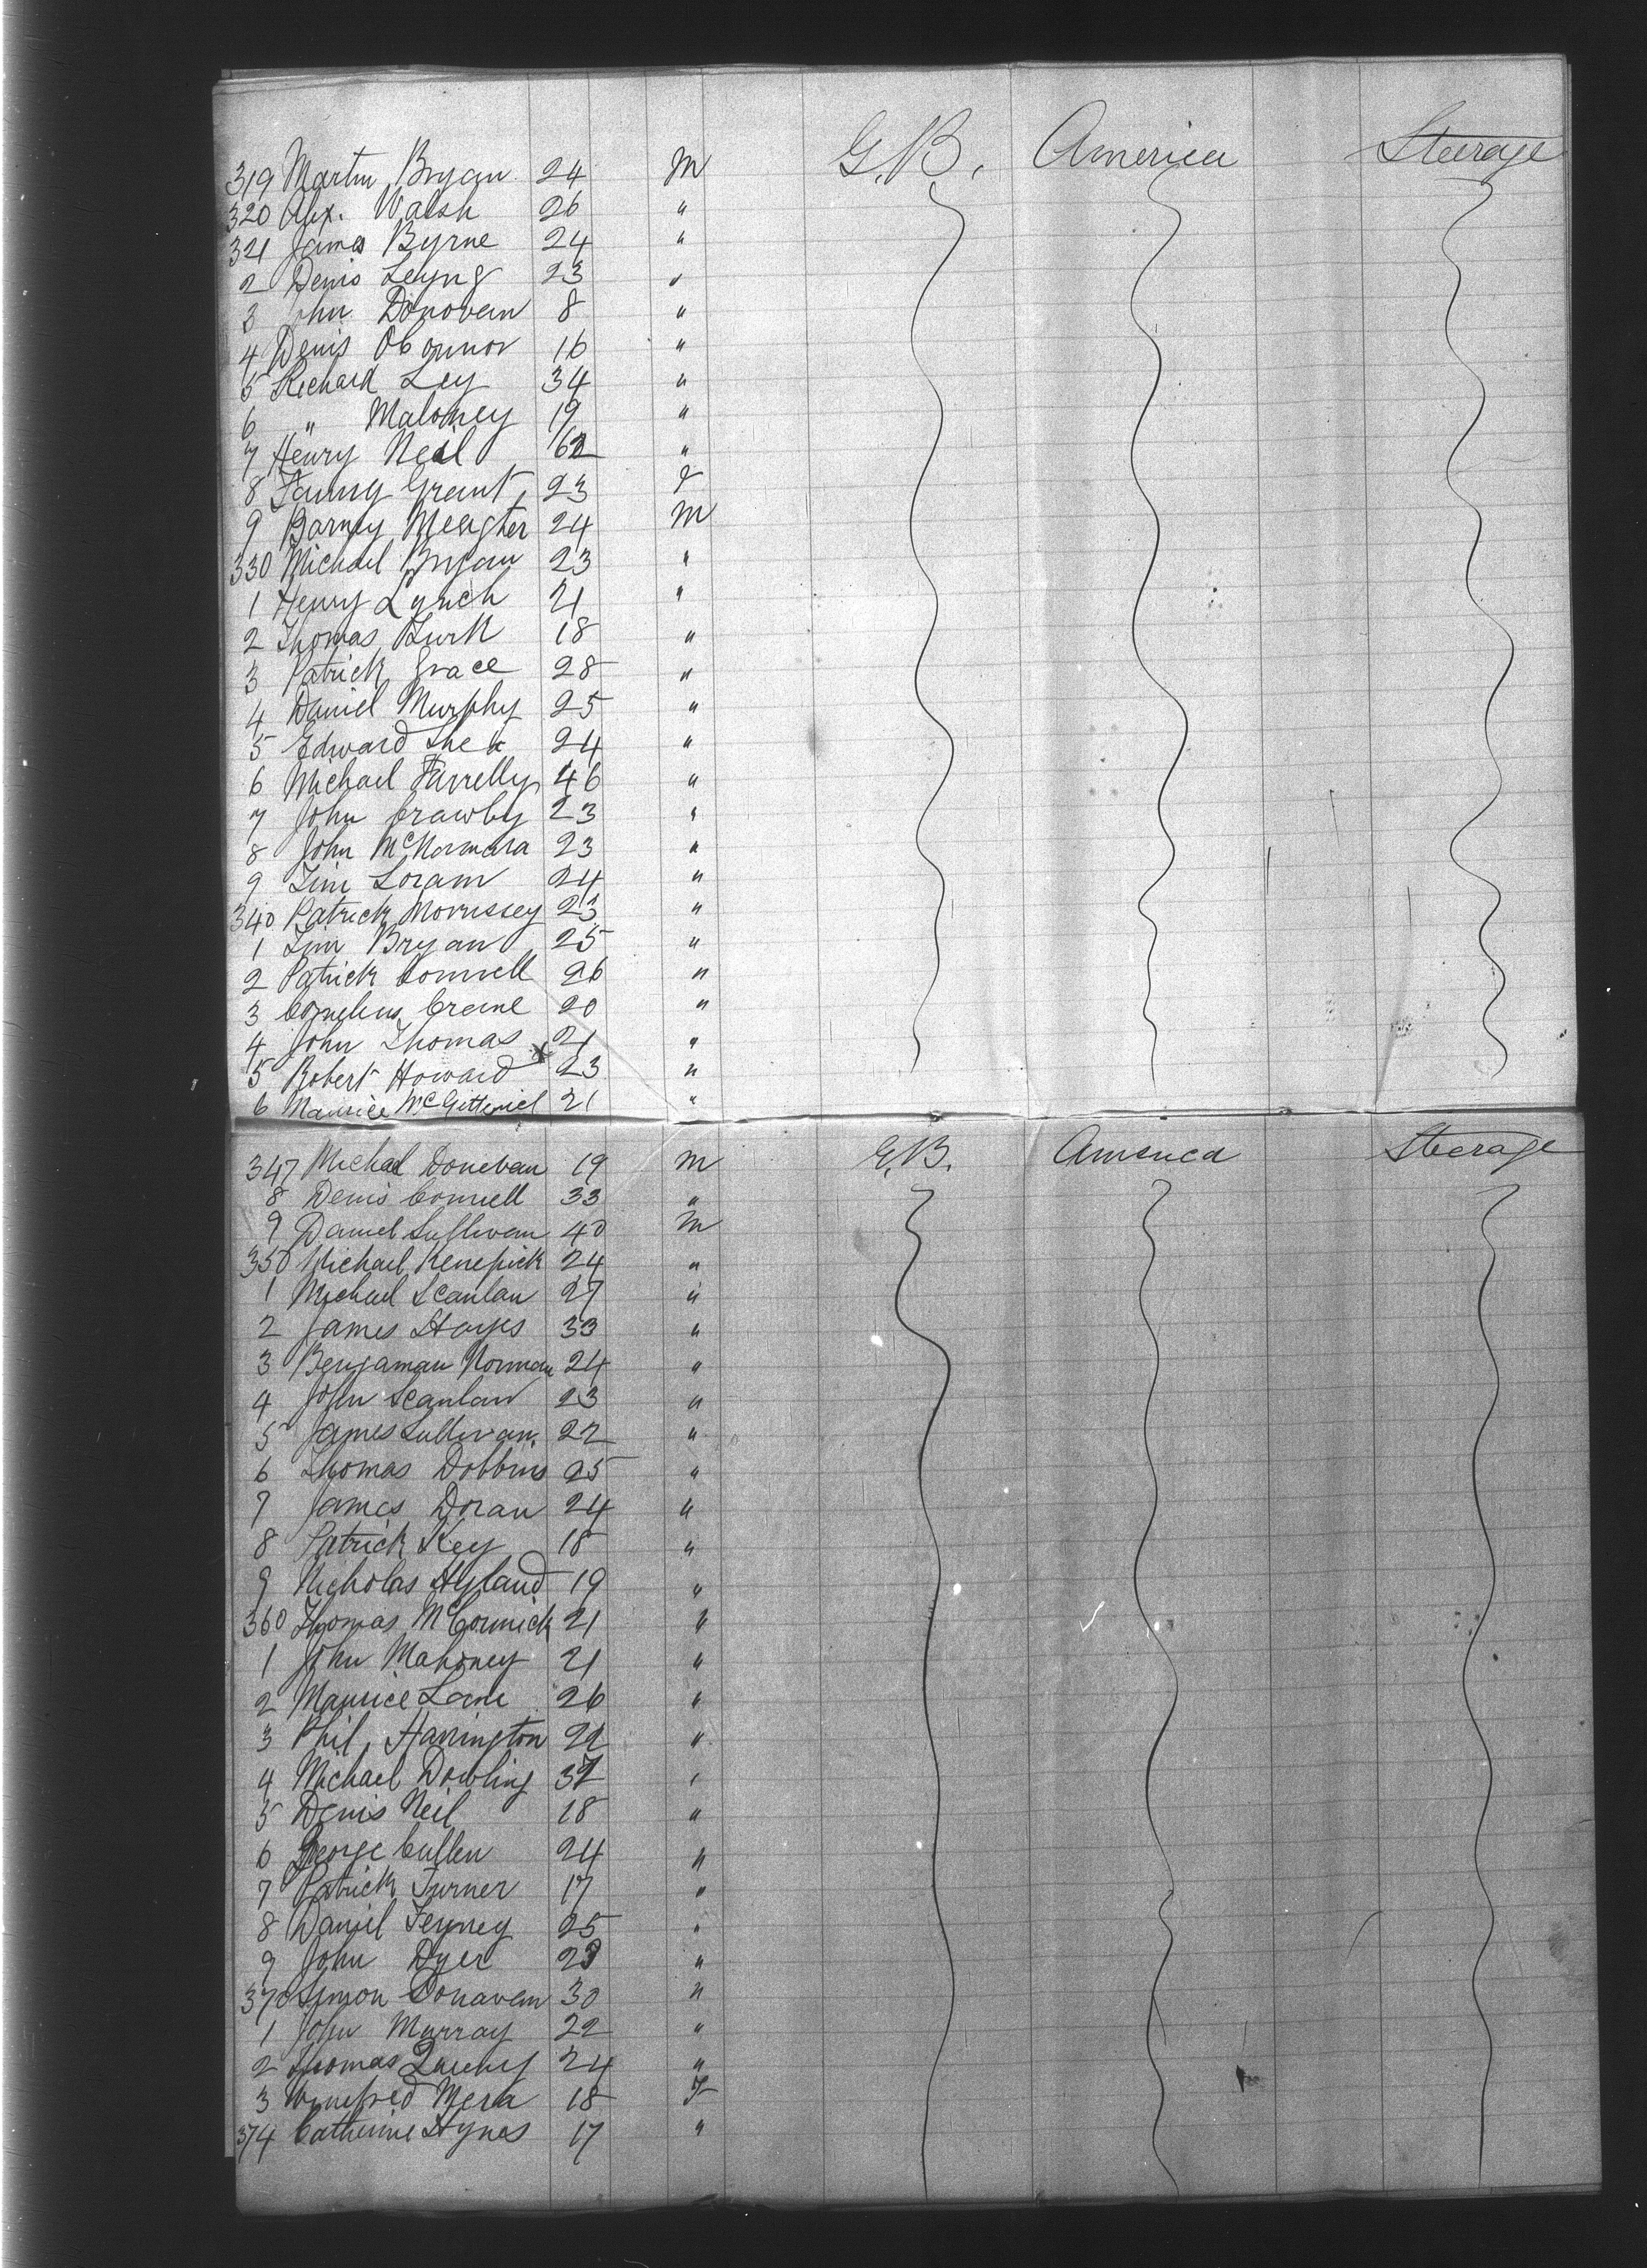 319 Martin Bryan 24 M G.B. America Steerage
320 Alex. Walsh 26 "
321 James Byrne 24 "
2 Denis 23 "
3 John Donovan 8 "
4 Denis OConnor 16 "
5 Richard Ley 34 "
6 " Maloney 19 "
7 Henry Neal "
8 Fanny Grant 23 F
9 Barney Meagher 24 M
330 Michael Bryan 23 "
1 Henry Lynch 21 "
2 Thomas Burk 18 "
3 Patrick Grace 28 "
4 Daniel Murphy 25 "
5 Edward 24 "
6 Michael Farrelly 46 "
7 John Crawley 23 "
8 John McNarmara 23 "
9 Tim Loram 24 "
340 Patrick Morrissey 23 "
1 Tim Bryan 25 "
2 Patrick Connell 26 "
3 Cornelius 20 "
4 John Thomas 21 "
5 Robert Howard x 23 "
6 Maurice 21 "
347 Michael Donovan 19 M G.B. America Steerage
8 Denis Connell 33 "
9 Daniel Sullivan 40 M
350 Michael Kenefick 24 "
1 Michael Scanlan 27 "
2 James Hayes 33 "
3 Benjaman Norman 24 "
4 John Scanlan 23 "
5 James Sullivan 22 "
6 Thomas Dobbins 25 "
7 James Doran 24 "
8 Patrick Key 18 "
9 Nicholas Hyland 19 "
360 Thomas McCormick 21 "
1 John Mahoney 21 "
2 Maurice Lane 26 "
3 Phil Harrington 22 "
4 Michael Dowling "
5 Denis Neil 18 "
6 George Cullen 24 "
7 Patrick Turner 17 "
8 Daniel Feyney 25 "
9 John Dyer "
370 Simon Donavan 30 "
1 John Murray 22 "
2 Thomas 24 "
3 Winefred Mera 18 F
374 Catherine Hynes 17 "